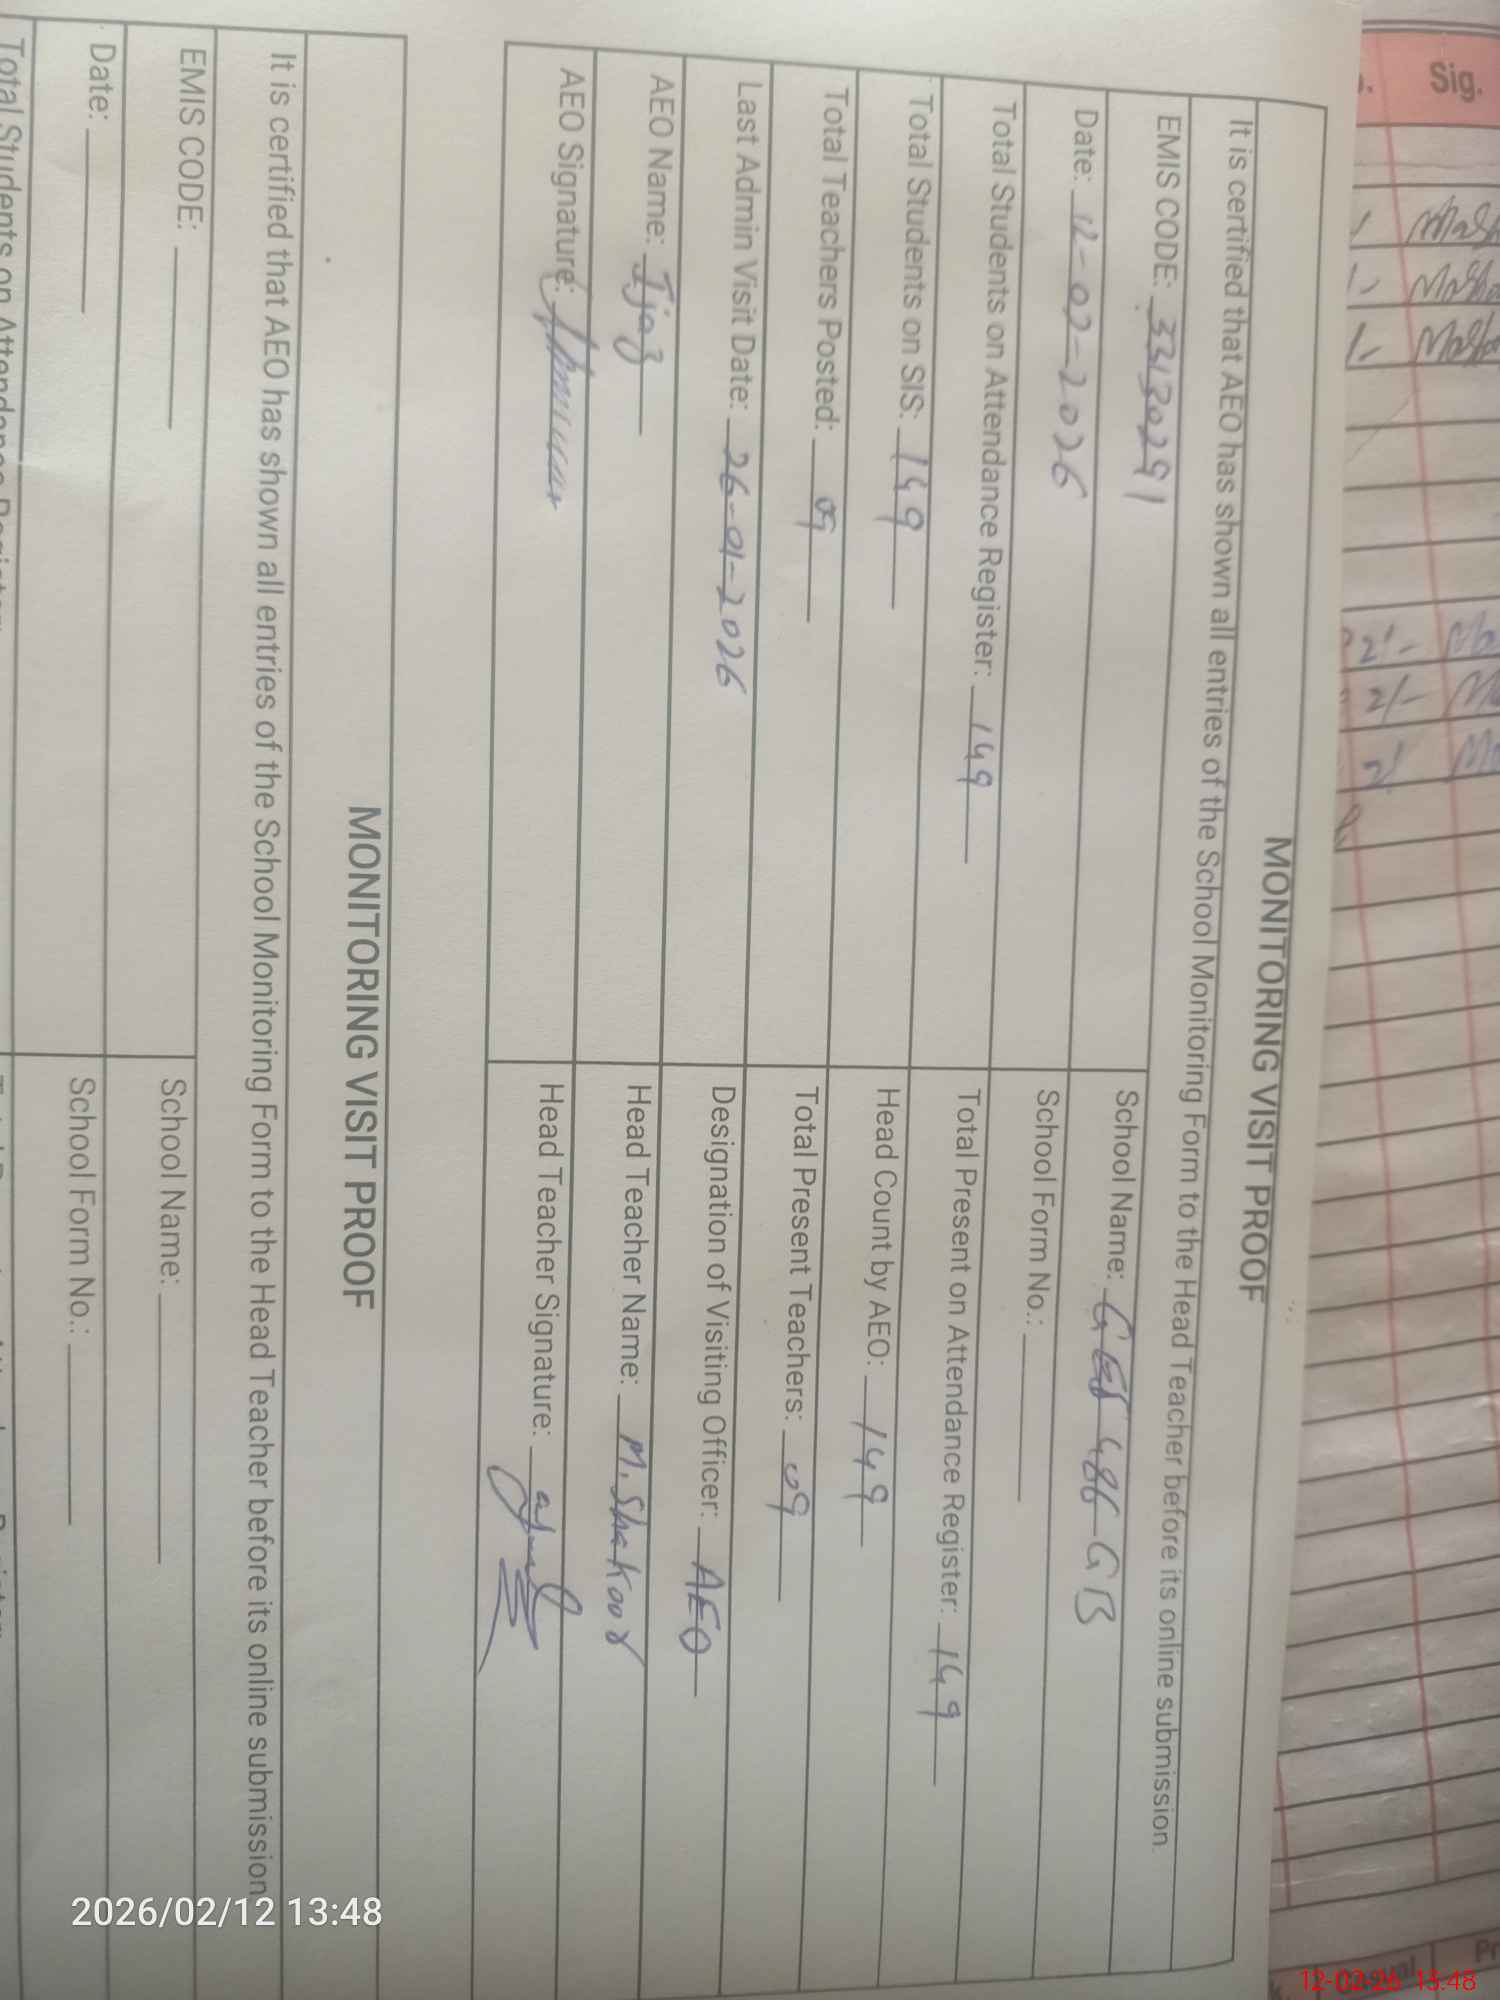 MONITORING VISIT PROOF
It is certified that AEO has shown all entries of the School Monitoring Form to the Head Teacher before its online submission.
EMIS CODE: 33130291 School Name: GES 486 GB
Date: 12-02-2026 School Form No.:
Total Students on Attendance Register: 149 Total Present on Attendance Register: 149
Total Students on SIS: 149 Head Count by AEO: 149
Total Teachers Posted: 09 Total Present Teachers: 09
Last Admin Visit Date: 26-01-2026 Designation of Visiting Officer: AEO
AEO Name: Ijaz Head Teacher Name: M. Shakoor
AEO Signature: Head Teacher Signature:
MONITORING VISIT PROOF
It is certified that AEO has shown all entries of the School Monitoring Form to the Head Teacher before its online submission
EMIS CODE: School Name:
Date: School Form No.:
Total Students on Attendance Register:
Sig.
2026/02/12 13:48
12-02-26 13:48